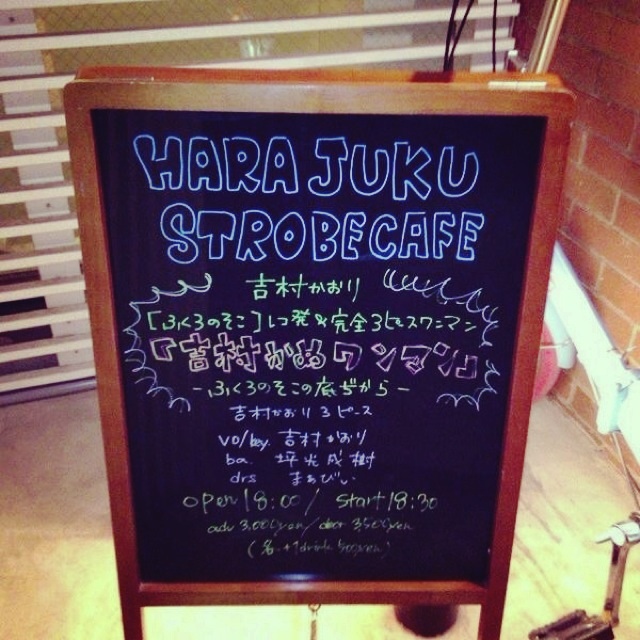 HARAJUKU
STROBECAFE
吉村かおり
[ふくろのそこ]レコ発&完全3ピースワンマン
『吉村かおワンマン』
-ふくろのそこの底ぢから-
吉村かおり3ピース
vo/key. 吉村かおり
ba. 坪光成樹
drs まぁびぃ
open 18:00 / start 18:30
adv 3,000yen/door 3,500yen
(各+1drink 500yen)